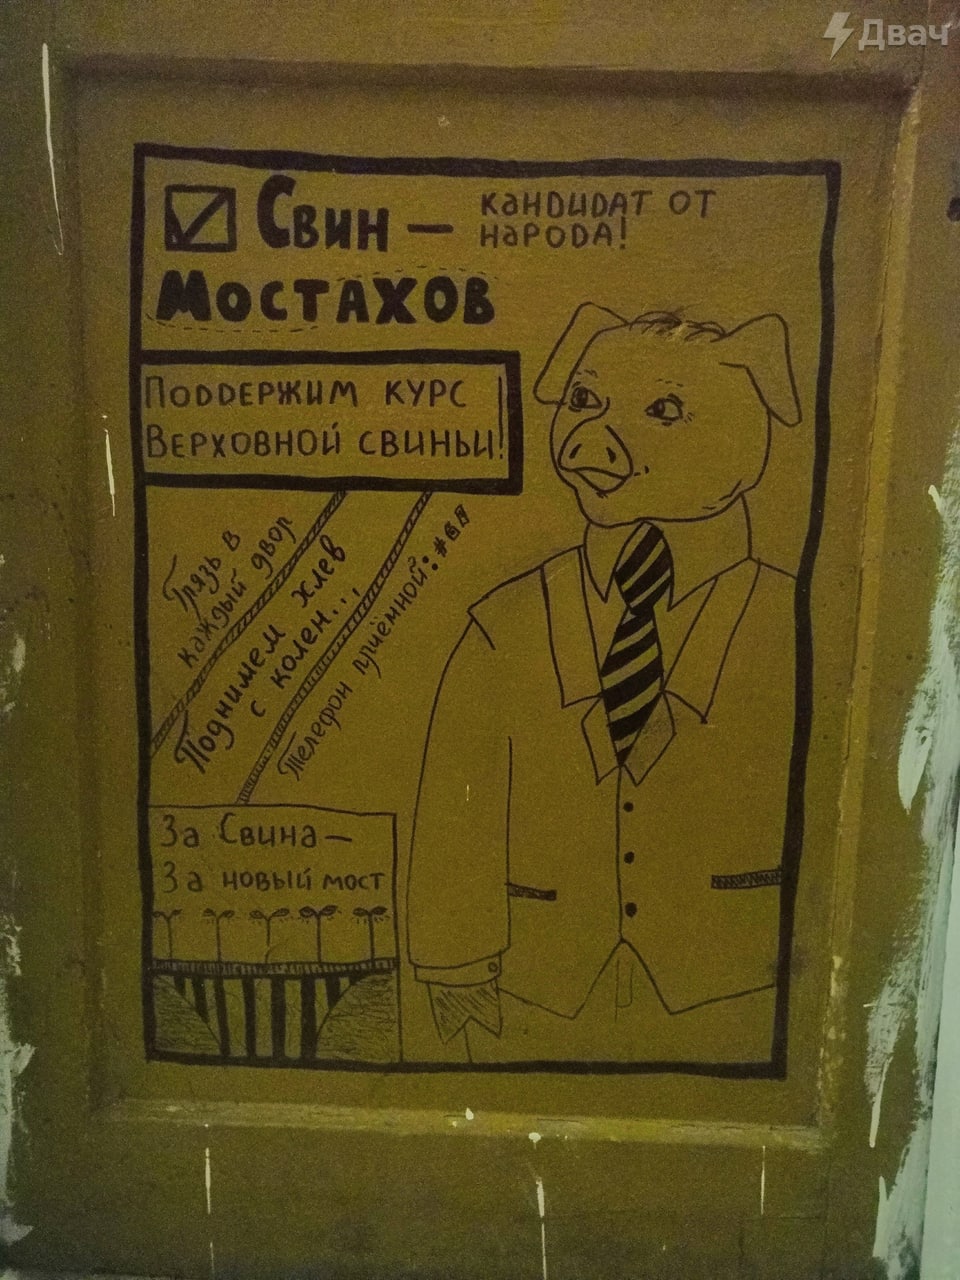 Двач
Свин —
Мостахов
кандидат от
народа!
Поддержим курс
Верховной свиньи!
Грязь в
каждый двор
Поднимем хлев
с колен...,
Телефон приёмной:
За Свина —
За новый мост